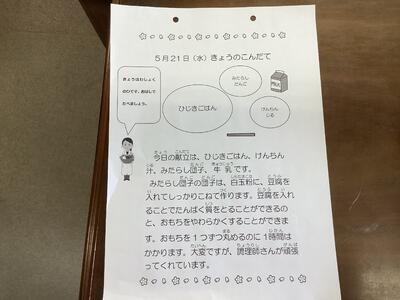 5月21日（水）きょうのこんだて
きょうはわしょく
のひです。おはしで
たべましょう。
みたらし
だんご
MILK
ひじきごはん
けんちん
じる
今日の献立は、ひじきごはん、けんちん
汁、みたらし団子、牛乳です。
みたらし団子の団子は、白玉粉に、豆腐を
入れてしっかりこねて作ります。豆腐を入れ
ることでたんぱく質をとることができるの
と、おもちをやわらかくすることができま
す。おもちを1つずつ丸めるのに1時間は
かかります。大変ですが、調理師さんが頑張
ってくれています。